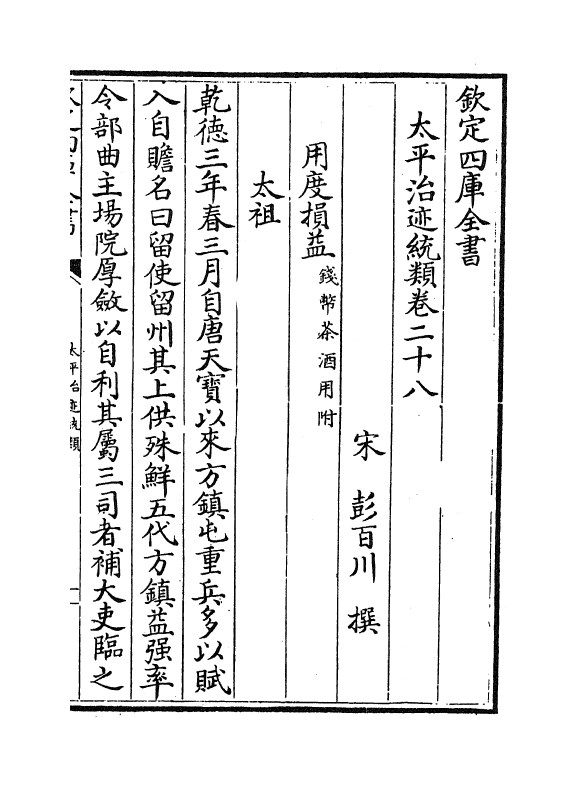 欽定四庫全書
太平治迹統類卷二十八
宋 彭百川 撰
用度損益錢幣茶酒用附
太祖
乾德三年春三月自唐天寶以來方鎮屯重兵多以賦
入自贍名曰留使留州其上供殊鮮五代方鎮益强率
令部曲主塲院厚斂以自利其屬三司者補大吏臨之
太平治迹統類